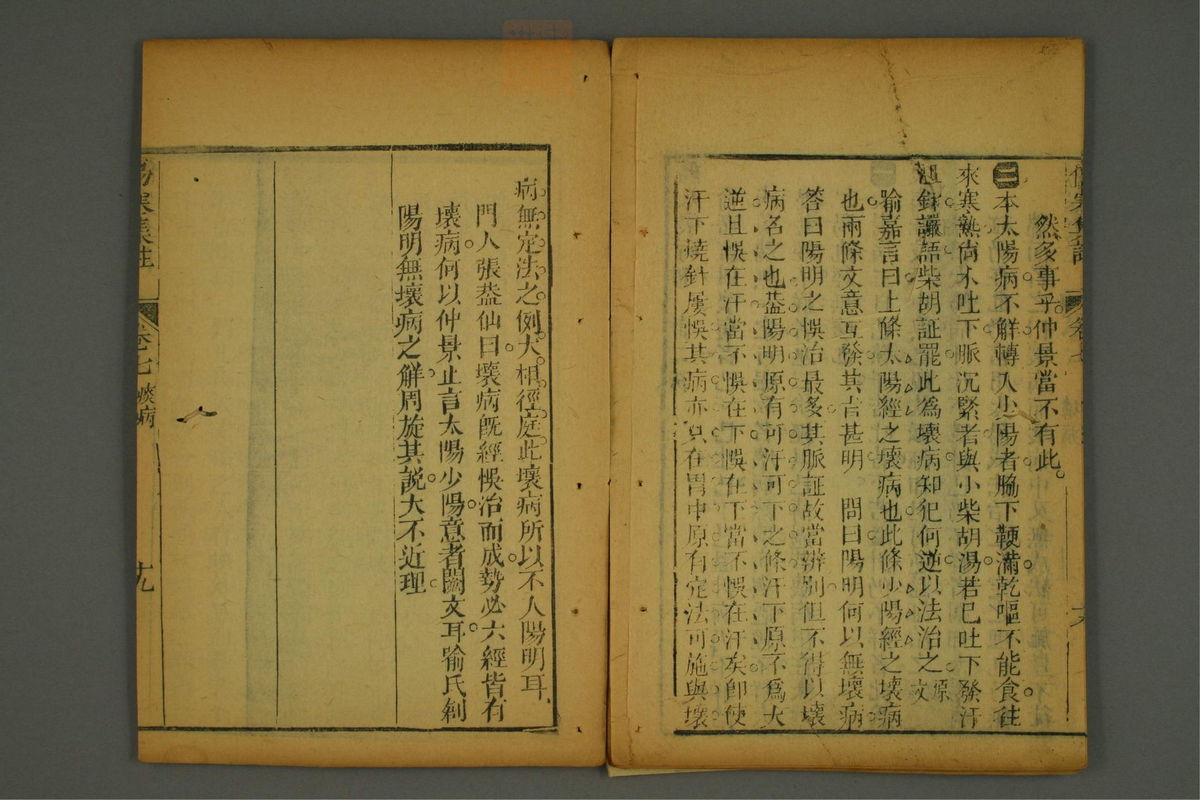 然多事乎仲景當不有此
二本太陽病不解轉入少陽者脇下鞕滿乾嘔不能食往
來寒熱尚不吐下脈沉緊者與小柴胡湯若已吐下發汗
溫針讝語柴胡証罷此為壞病知犯何逆以法治之原文
喻嘉言曰上條太陽經之壞病也此條少陽經之壞病
也兩條文意互發其旨甚明 問曰陽明何以無壞病
答曰陽明之悞治最多其脈証故當辨別但不得以壞
病名之也葢陽明原有可汗可下之條汗下原不爲大
逆且悞在汗當不悞在下悞在下當不悞在汗矣即使
汗下燒針屢悞其病亦只在胃中原有定法可施與壞
病無定法之例大相徑庭此壞病所以不入陽明耳
門人張葢仙曰壞病旣經悞治而成勢必六經皆有
壞病何以仲景止言太陽少陽意者闕文耳喻氏剏
陽明無壞病之解周旋其説大不近理
傷寒集註
卷七
壞病
十九